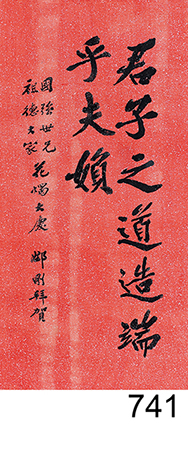 君子之道造端
乎夫婦
國強世兄
祖德大家 花燭大慶
鄒剛拜賀
741